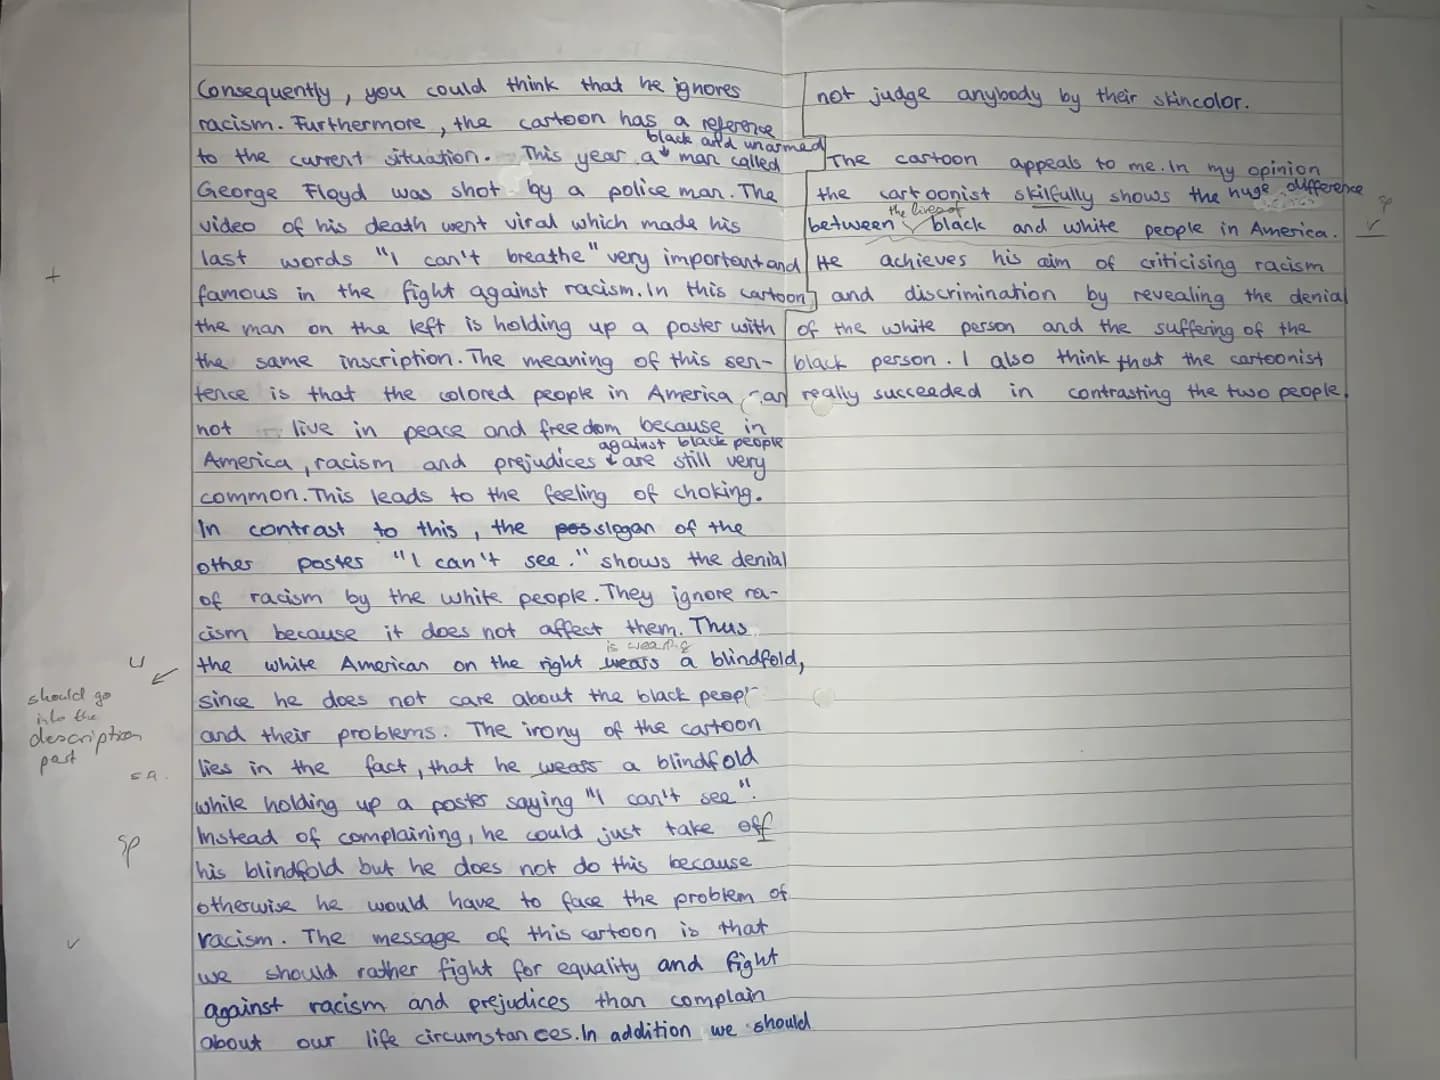 Consequently, you could think that he ignores
racism. Furthermore, the cartoon has a reference
black and unarmed
to the current situation. This year a man called
George Floyd was shot by a police man. The
video of his death went viral which made his
last words "I can't breathe" very important and
famous in the fight against racism. In this cartoon
the man on the left is holding up a poster with
the same inscription. The meaning of this sen-
tence is that the colored people in America can
not live in peace and freedom because in
against black people
America, racism and prejudices are still very
common. This leads to the feeling of choking.
In contrast to this, the pos slogan of the
other poster "I can't see." shows the denial
of racism by the white people. They ignore ra-
cism because it does not affect them. Thus
is wearing
the white American on the right wears a blindfold,
since he does not care about the black peopl
and their problems. The irony of the cartoon
lies in the fact, that he wears a blindfold
while holding up a poster saying "I can't see".
Instead of complaining, he could just take off
his blindfold but he does not do this because
otherwise he would have to face the problem of
racism. The message of this cartoon is that
we should rather fight for equality and fight
against racism and prejudices than complain
about our life circumstances. In addition we should
+
u
should go
into the
description
part
sp
✓
not judge anybody by their skincolor.
The cartoon appeals to me. In my opinion
the cartoonist skilfully shows the huge difference
the lives of
between black and white people in America.
He achieves his aim of criticising racism
and discrimination by revealing the denial
of the white person and the suffering of the
black person. I also think that the cartoonist
really succeeded in contrasting the two people.
sp
✓